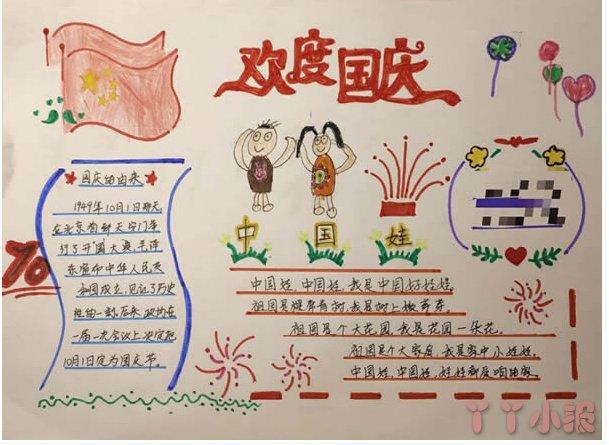 欢度国庆
国庆的由来
1949年10月1日那天
在北京的新天安门举
行了开国大典毛泽
东宣布中华人民共
和国成立,见证了历史
性的一刻,后来
一届一次会议上决定把
10月1日定为国庆节。
70
中 国 娃
中国娃,中国娃,我是中国好娃娃,
祖国是棵身有树,我是树上嫩芽芽。
祖国是个大花园,我是花园一朵花。
祖国是个大家庭,我是家中小娃娃.
中国娃,中国娃,娃娃都爱咱国家.
丫丫小报